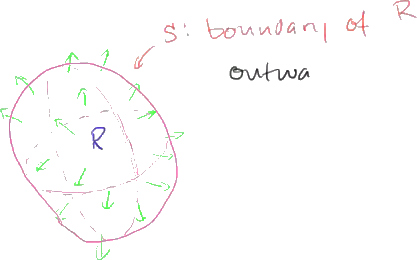 S: boundary of R
outwa
R